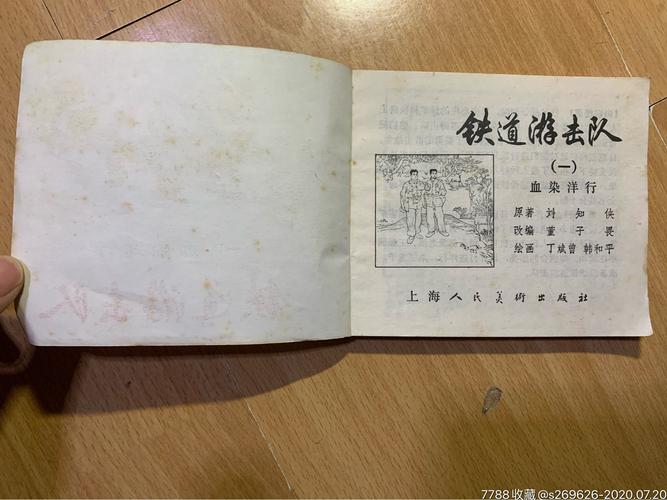 铁道游击队
(一)
血染洋行
原著 刘知侠
改编 董子畏
绘画 丁斌曾 韩和平
上海人民美術出版社
铁道游击队
7788收藏@s269626-2020.07.20